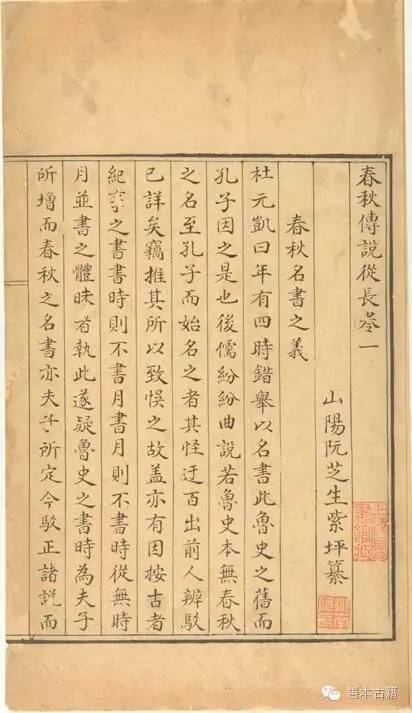 春秋傳說從長卷一
山陽阮芝生紫坪纂
春秋名書之義
杜元凱曰年有四時錯舉以名書此魯史之舊而
孔子因之是也後儒紛紛曲說若魯史本無春秋
之名至孔子而始名之者其怪迂百出前人辨駁
已詳矣竊推其所以致悞之故盖亦有因按古者
紀事之書書時則不書月書月則不書時從無時
月並書之體昧者執此遂疑魯史之書時為夫子
所增而春秋之名書亦夫子所定今駁正諸説而
善本古籍